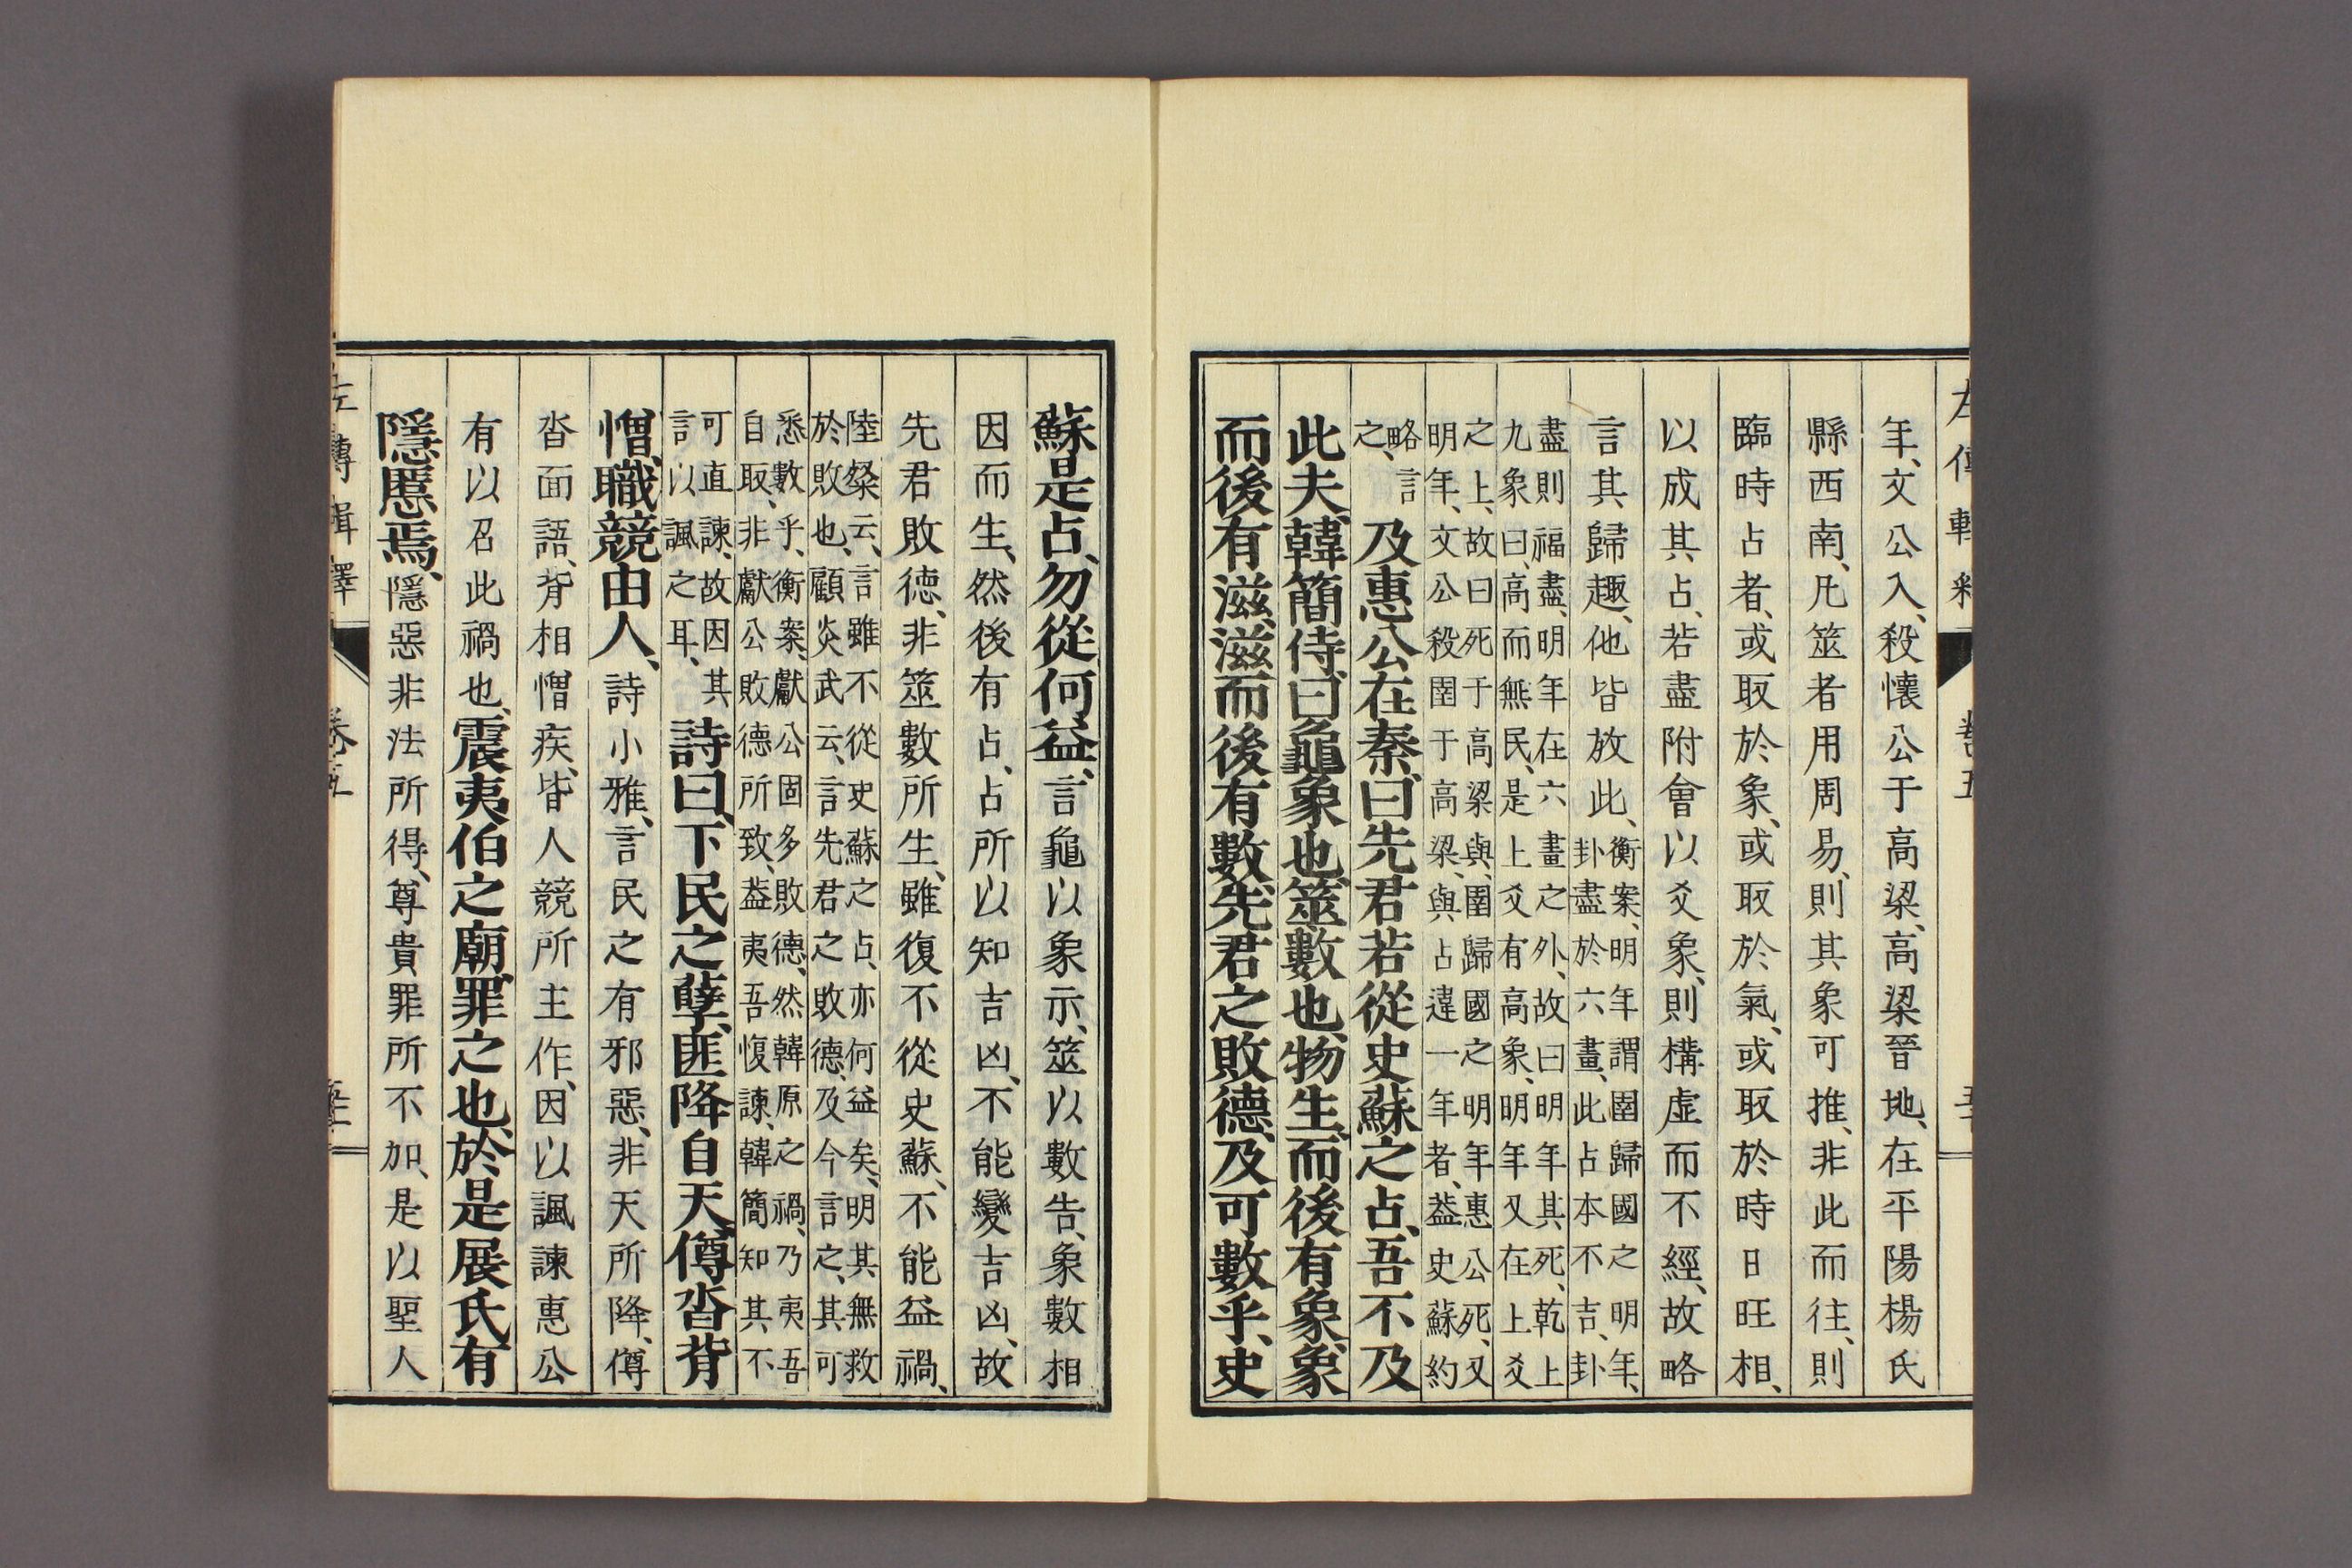 年、文公入、殺懷公于高梁、高梁晉地、在平陽楊氏
縣西南、凡筮者用周易、則其象可推、非此而往、則
臨時占者、或取於象、或取於氣、或取於時日旺相、
以成其占、若盡附會以爻象、則構虛而不經、故略
言其歸趣、他皆放此、
衡案、明年謂圉歸國之明年、
卦盡於六畫、此占本不吉、卦
盡則福盡、明年在六畫之外、故曰明年其死、乾上
九象曰、高而無民、是上爻有高象、明年又在上爻
之上、故曰死于高梁與、圉歸國之明年惠公死、又
明年、文公殺圉于高梁、與占違一年者、蓋史蘇約
略言
之、
及惠公在秦、曰先君若從史蘇之占、吾不及
此夫、韓簡侍、曰龜象也、筮數也、物生、而後有象、象
而後有滋、滋而後有數、先君之敗德、及可數乎、史
蘇是占、勿從何益、言龜以象示、筮以數告、象數相
因而生、然後有占、占所以知吉凶、不能變吉凶、故
先君敗德、非筮數所生、雖復不從史蘇、不能益禍、
陸粲云、言雖不從史蘇之占、亦何益矣、明其無救
於敗也、顧炎武云、言先君之敗德、及今言之、其可
悉數乎、衡案、獻公固多敗德、然韓原之禍、乃夷吾
自取、非獻公敗德所致、蓋夷吾愎諫、韓簡知其不
可直諫、故因其
言以諷之耳、
詩曰、下民之孽、匪降自天、僔沓背
憎、職競由人、詩小雅、言民之有邪惡、非天所降、僔
沓面語、背相憎疾、皆人競所主作、因以諷諫惠公
有以召此禍也、震夷伯之廟、罪之也、於是展氏有
隱慝焉、隱惡非法所得、尊貴罪所不加、是以聖人